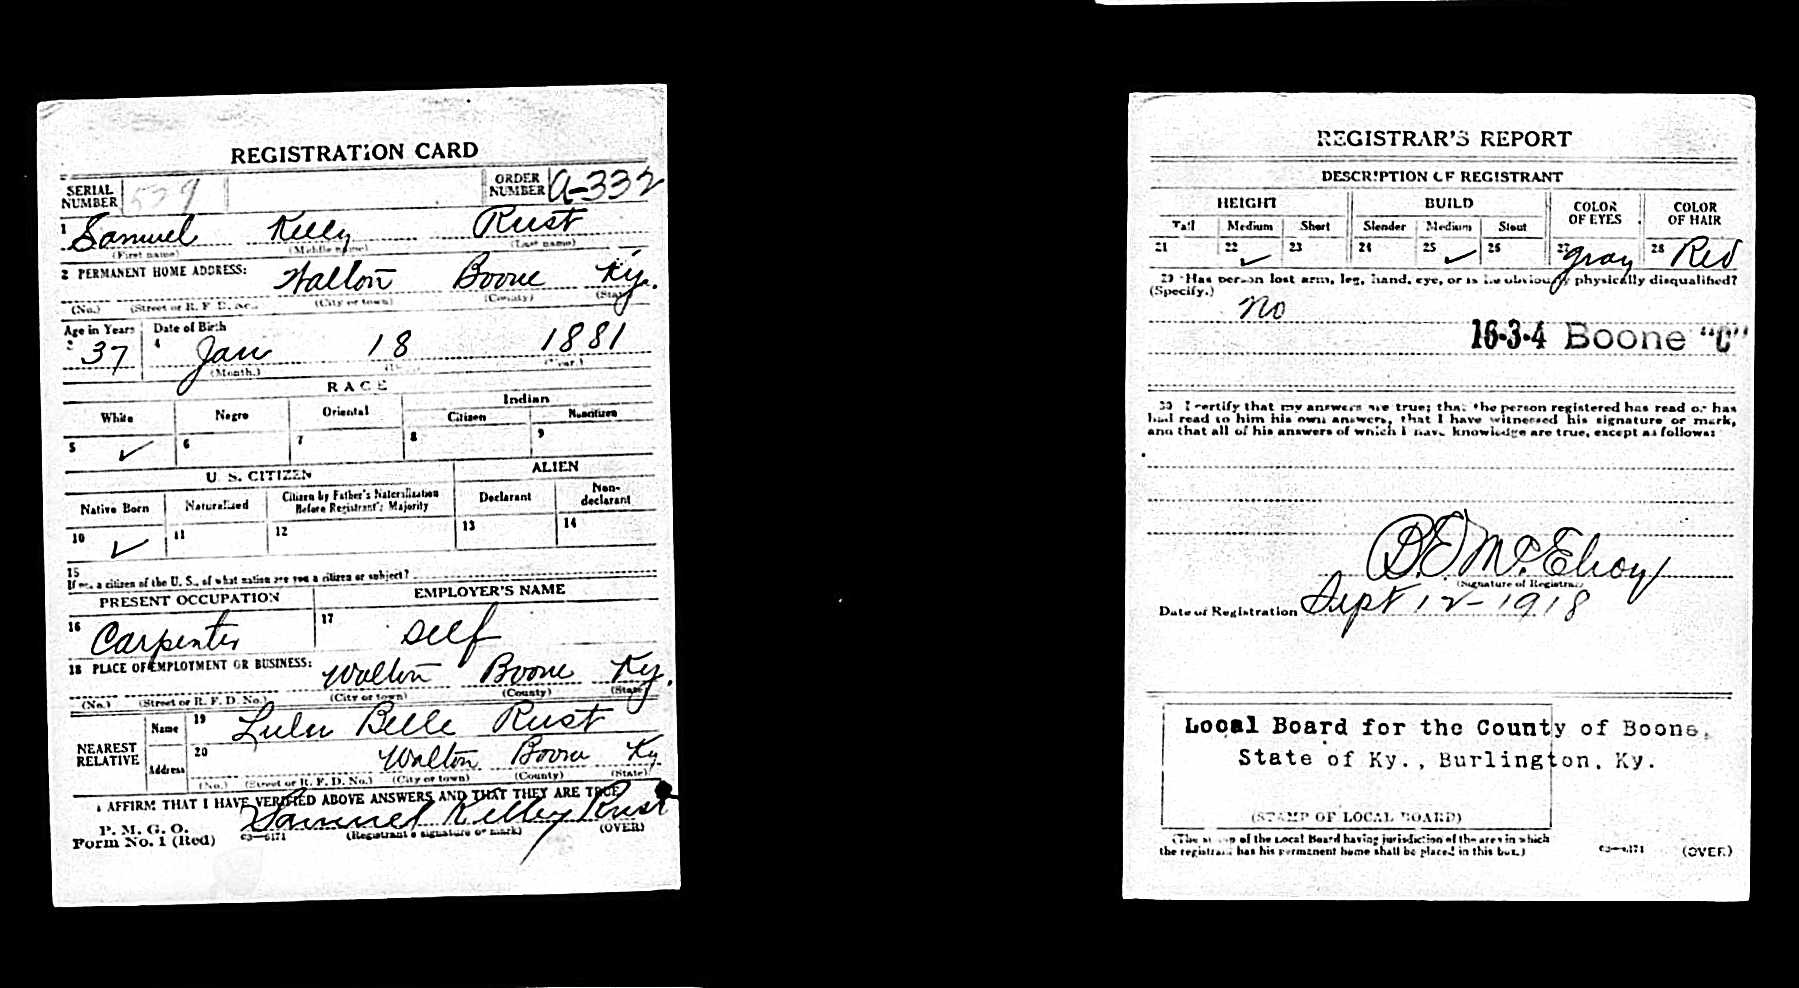 REGISTRATION CARD
SERIAL NUMBER 539 ORDER NUMBER A-332
1 Samuel Kelly Rust
(First name) (Middle name) (Last name)
2 PERMANENT HOME ADDRESS: Walton Boone Ky.
(No.) (Street or R. F. D. No.) (City or town) (County) (State)
Age in Years Date of Birth
3 37 4 Jan 18 1881
(Month.) (Day.) (Year.)
RACE
White Negro Oriental Indian
Citizen Noncitizen
5 ✓ 6 7 8 9
U. S. CITIZEN ALIEN
Native Born Naturalized Citizen by Father's Naturalization Before Registrant's Majority Declarant Non-declarant
10 ✓ 11 12 13 14
15
If not a citizen of the U. S., of what nation are you a citizen or subject?
PRESENT OCCUPATION EMPLOYER'S NAME
16 Carpenter 17 Self
18 PLACE OF EMPLOYMENT OR BUSINESS: Walton Boone Ky.
(No.) (Street or R. F. D. No.) (City or town) (County) (State)
NEAREST RELATIVE Name 19 Lulu Belle Rust
Address 20 Walton Boone Ky
(No.) (Street or R. F. D. No.) (City or town) (County) (State)
I AFFIRM THAT I HAVE VERIFIED ABOVE ANSWERS AND THAT THEY ARE TRUE
P. M. G. O.
Form No. 1 (Red) 03—6171 Samuel Kelley Rust
(Registrant's signature or mark) (OVER)
REGISTRAR'S REPORT
DESCRIPTION OF REGISTRANT
HEIGHT BUILD COLOR OF EYES COLOR OF HAIR
Tall Medium Short Slender Medium Stout
21 22 ✓ 23 24 25 ✓ 26 27 Gray 28 Red
29 Has person lost arm, leg, hand, eye, or is he obviously physically disqualified?
(Specify.) No
16-3-4 Boone "C"
30 I certify that my answers are true; that the person registered has read or has
had read to him his own answers, that I have witnessed his signature or mark,
and that all of his answers of which I have knowledge are true, except as follows:
B. E. McElroy
(Signature of Registrar)
Date of Registration Sept 12-1918
Local Board for the County of Boone,
State of Ky., Burlington, Ky.
(STAMP OF LOCAL BOARD)
(The stamp of the Local Board having jurisdiction of the area in which
the registrant has his permanent home shall be placed in this box.)
03—6171 (OVER)